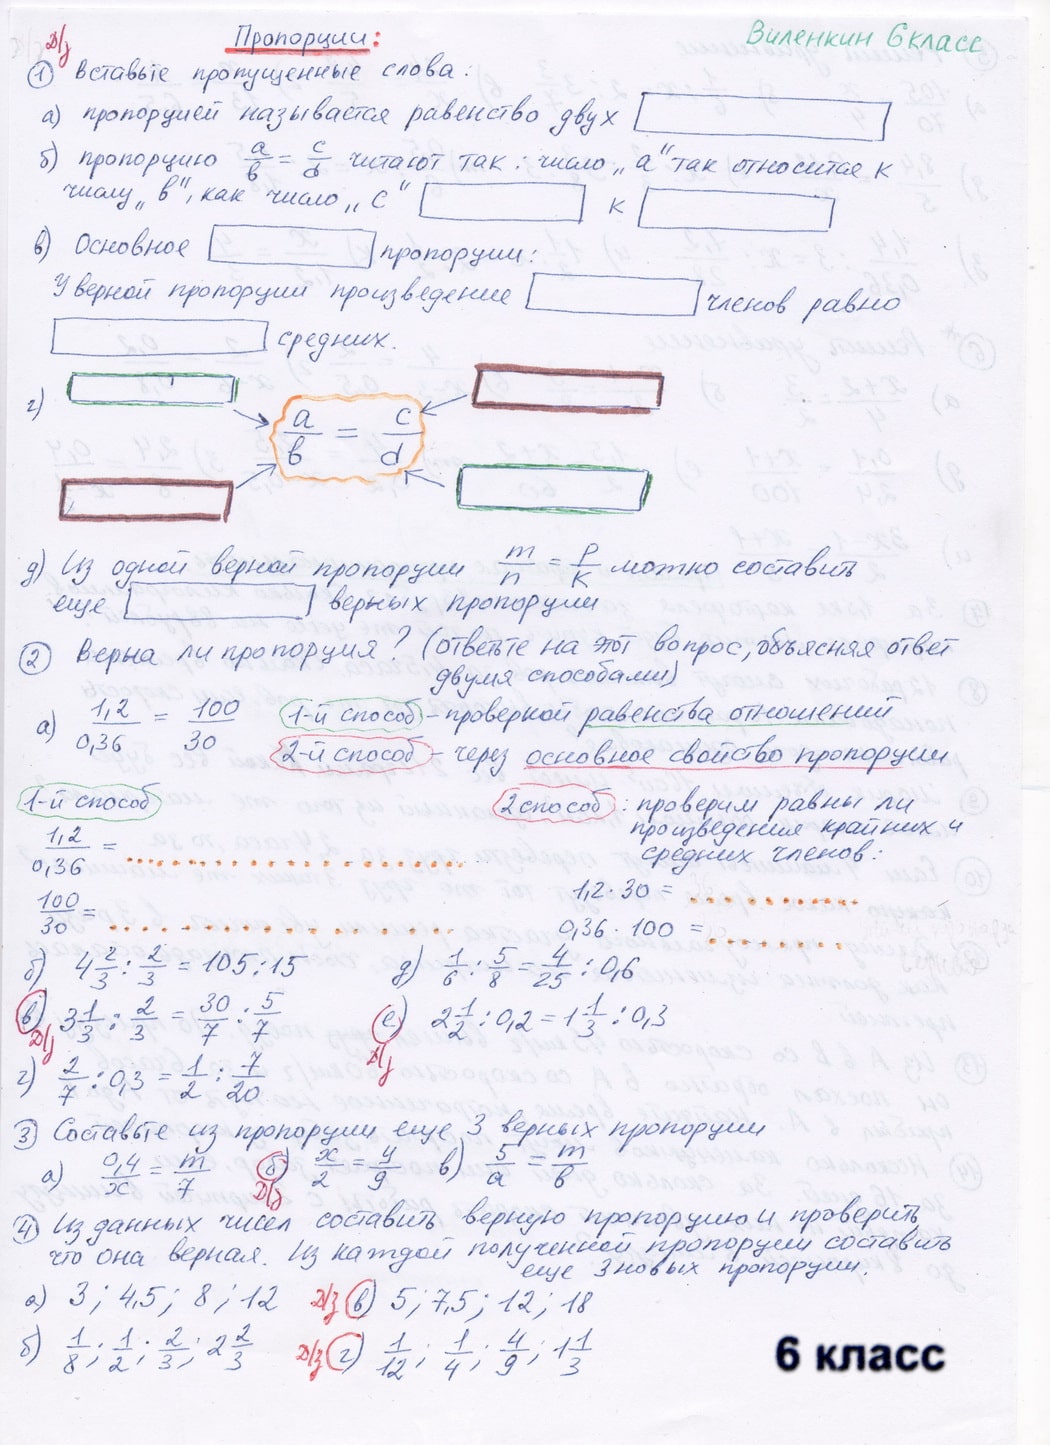 Д/з Пропорции: Виленкин 6 класс
① Вставьте пропущенные слова:
а) пропорцией называется равенство двух
б) пропорцию a/b = c/d читают так: число „а" так относится к
числу „в", как число „с" к
в) Основное пропорции:
У верной пропорции произведение членов равно
средних.
г) a/b = c/d
д) Из одной верной пропорции m/n = p/k можно составить
еще верных пропорции
② Верна ли пропорция? (ответьте на этот вопрос, объясняя ответ
двумя способами)
а) 1,2/0,36 = 100/30 1-й способ - проверкой равенства отношений
2-й способ - через основное свойство пропорции
1-й способ 2 способ: проверим равны ли
произведения крайних и
средних членов:
1,2/0,36 =
100/30 =
1,2 · 30 =
0,36 · 100 =
б) 4 2/3 : 2/3 = 105 : 15 д) 1/6 : 5/8 = 4/25 : 0,6
в) Д/з 3 1/3 : 2/3 = 30/7 : 5/7 е) Д/з 2 1/2 : 0,2 = 1 1/3 : 0,3
г) 2/7 : 0,3 = 1/2 : 7/20
③ Составьте из пропорции еще 3 верных пропорции
а) 0,4/x = m/7 б) Д/з x/2 = y/9 в) 5/a = m/b
④ Из данных чисел составить верную пропорцию и проверить
что она верная. Из каждой полученной пропорции составить
еще 3 новых пропорции.
а) 3; 4,5; 8; 12 Д/з в) 5; 7,5; 12; 18
б) 1/8; 1/2; 2/3; 2 2/3 Д/з г) 1/12; 1/4; 4/9; 1 1/3
6 класс